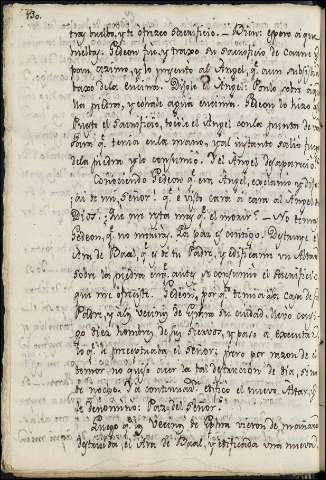 130.
tras buelbo, y te ofrezco Sacrificio. — Bien: espero a que
vueltas. Gedeon fue, y traxo su Sacrificio de Carne y
pan azimo, y lo presento al Angel, q.e aun subsistia
baxo de la encina. Dijole el Angel: Ponlo sobre aque
lla piedra, y echale agua encima. Gedeon lo hizo asi
Puesto el Sacrificio, tocole el Angel con la punta de una
bara q.e tenia en la mano, y al instante salio fuego
de la piedra y lo consumio. Y el Angel desaparecio.
Conociendo Gedeon q.e era Angel, exclamo y dijo:
¡ai de mi Señor! q.e è visto cara a cara al Angel de
Dios: ¡ai me resta mas q.e el morir? — No temas
Gedeon, q.e no moriras. La paz es contigo. Destruye el
Ara de Baal, q.e es de tu Padre, y edificame un Altar
sobre la piedra en q.e antes se consumio el Sacrificio
que me ofreciste. Gedeon, por q.e temia la Casa de su
Padre, y a los Vecinos de Ephra su ciudad. Llevo consi-
go diez hombres de sus Siervos, y paso a executar
lo q.e le preceptuaba el Señor; pero por razon de el
temor no quiso acer la tal destruccion de dia, sino
de noche. Y a continuacion edifico el nuevo Altar, y
le denomino: Paz del Señor.
Luego q.e los Vecinos de Ephra vieron de mañana
destruida el Ara de Baal, y edificada una nueva